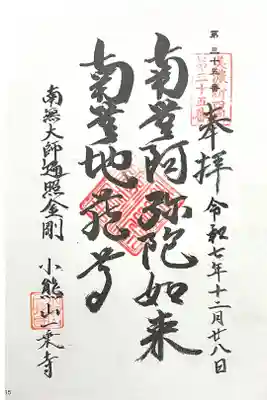 第三十五番
奉拝 令和七年十二月廿八日
南無阿弥陀如来
南無地蔵尊
南無大師遍照金剛 小熊山一乗寺
15